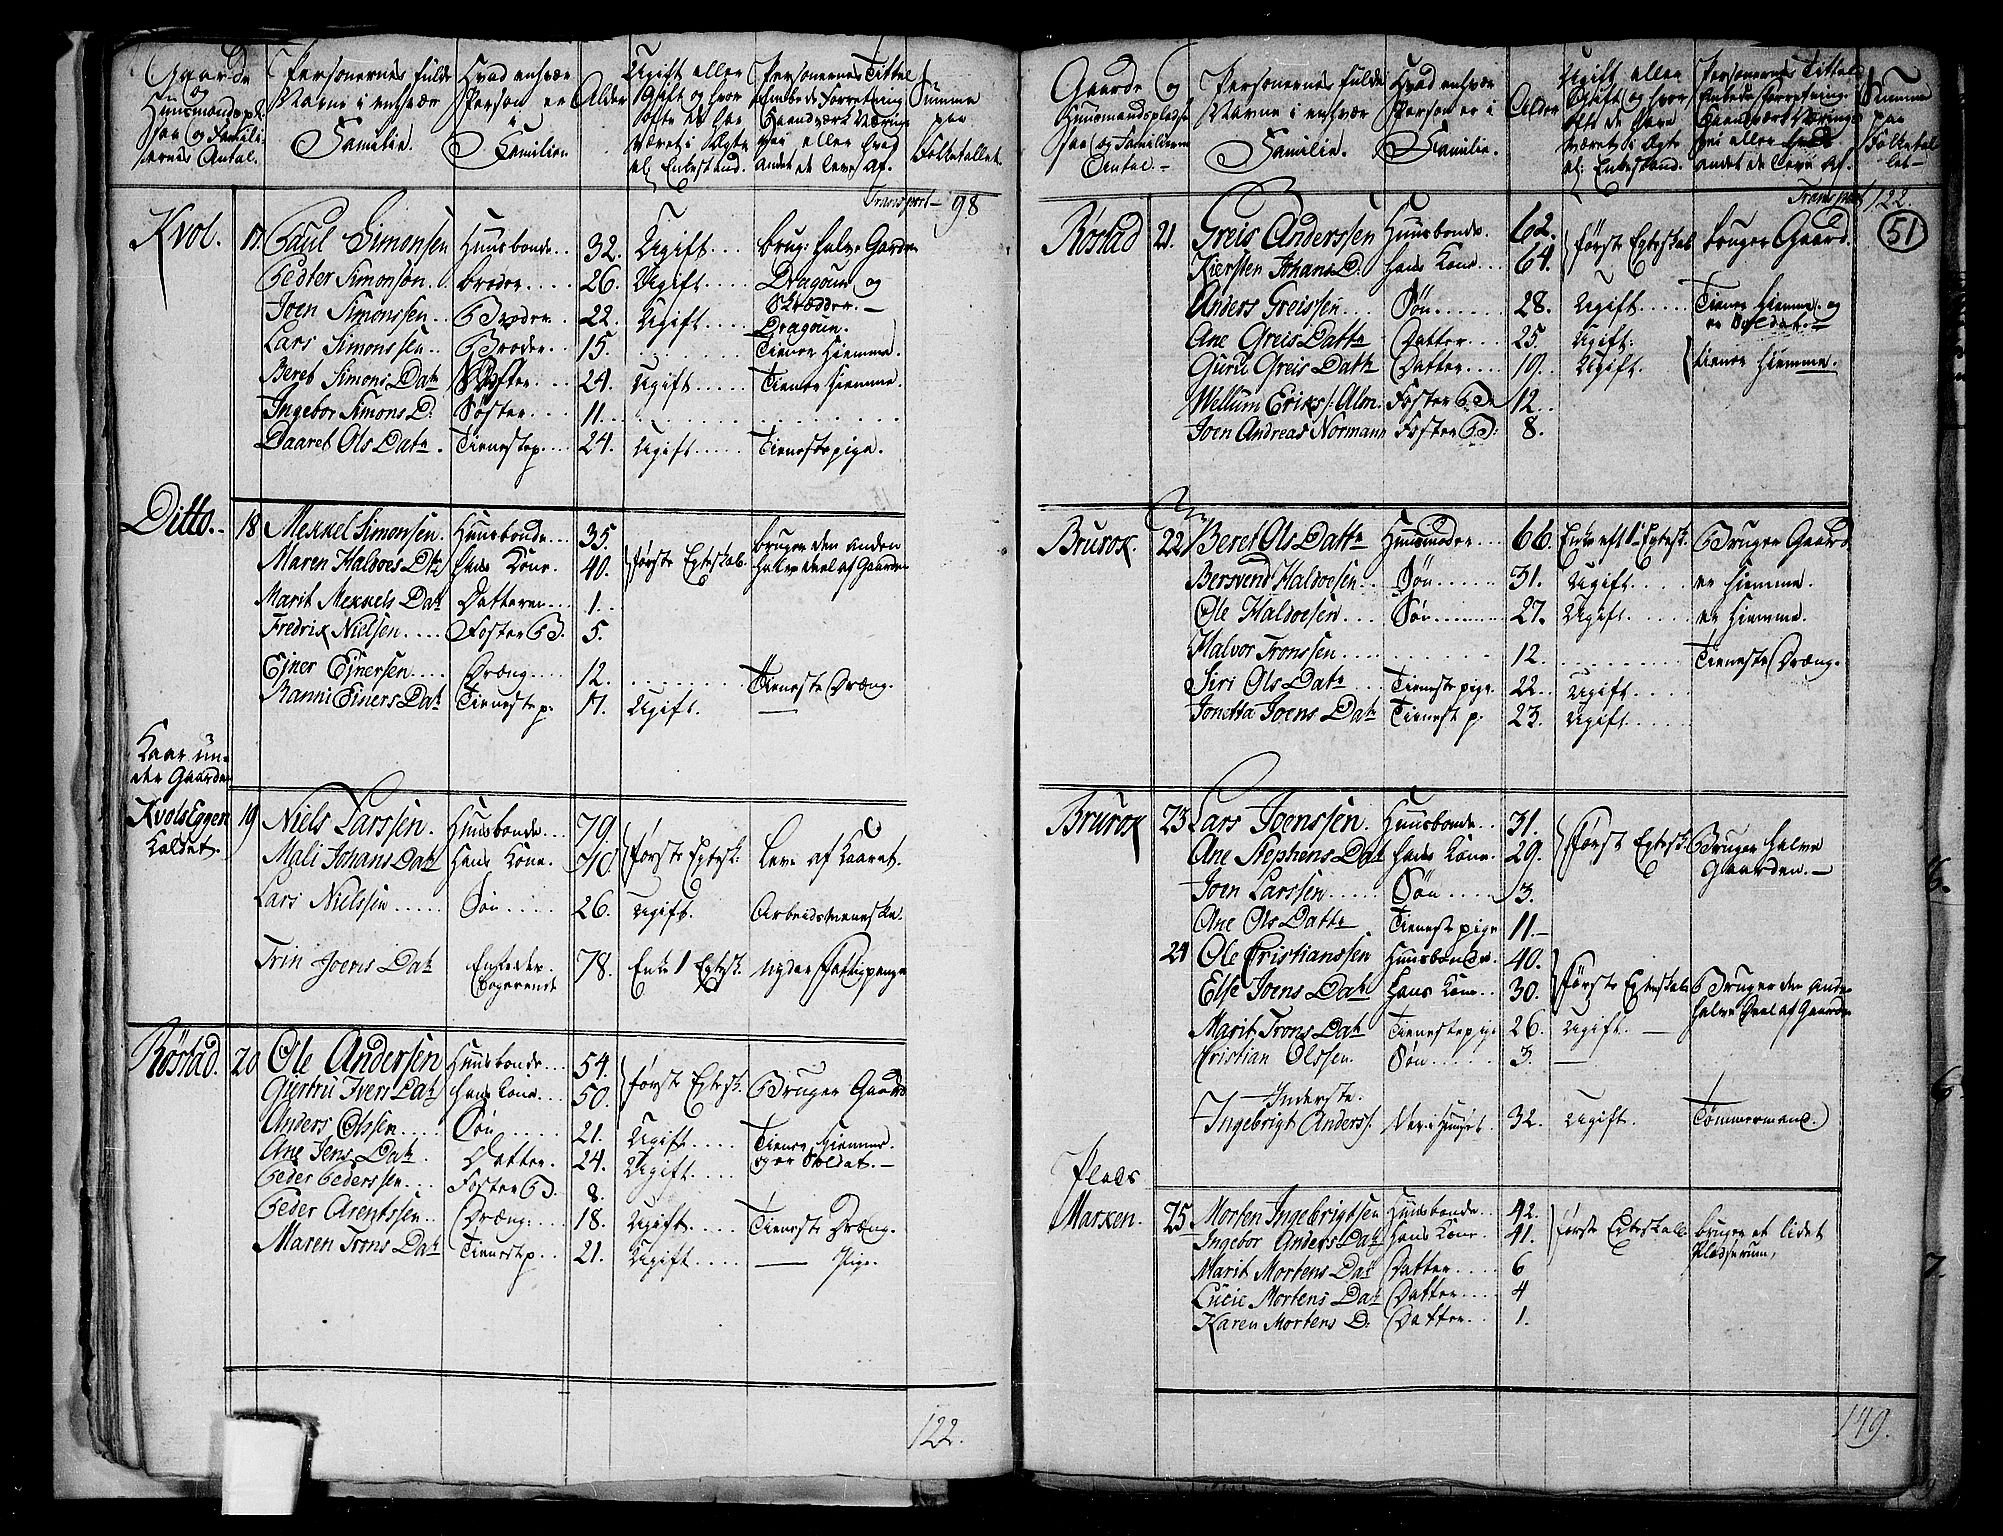 Gaarde og Huusmandspl. saa og Familiernes Antal.
Personernes fulde Navne i enhvær Familie.
Hvad enhvær Person er i Familien
Alder
Ugift eller Gift og hvor ofte de har været i Ægte el. Enkestand.
Personernes Tittel Embede Forretning Haandværk Nærings Vei, eller hvad andet de leve af.
Summa paa Folketallet.
Transport 98
Kvol. 17. Paul Simonsen Huusbonde 32. Ugift brug: halve Gaarden
Pedter Simonson. broder 26. Ugift Dragoun og Skrædder.
Joen Simonssen Broder 22. Ugift Dragoun.
Lars Simonssen Broder 15. Tiener hiemme.
Beret Simons Datr Søster 24. Ugift Tiener hiemme.
Ingebor Simons D: Søster 11.
Daaret Ols Datr Tienestep. 24. Ugift Tienestepige.
Ditto. 18 Mexkel Simonsen. Huusbonde 35. første Egteskab. bruger den anden halve deel af Gaarden
Maren Haldoes Dtr hans Kone 40.
Marit Mexkels Datr Datteren 1.
Fredrix Nielsen Foster B. 5.
Ejner Ejnersen Dræng 12. Tieneste Dræng.
Ranni Einers Datr Tienestep. 17. Ugift.
Kaar under Gaarden Kvols Eggen Kaldet.
19 Niels Larssen. Huusbonde 79 første Egtesk: Leve af Kaaret.
Mali Johans Datr Hans Kone
Lars Nielssen Søn 26. ugift. Arbeidsmeneske.
Trin Joens Datr 78. Enke 1 Egtesk. Nyder Fattigpenge
Röstad. 20 Ole Andersen Huusbonde 54. første Egtesk. Bruger Gaard
Gurtru Ivers Datr hans Kone 50.
Anders Olssen Søn 21. Ugift Tiener hiemme og er Soldat.
Ane Jens Datr Datter. 24. Ugift
Peder Pederssen Foster B. 8.
Peder Arentssen Dræng 18. Ugift. Tieneste Dræng.
Maren Trons Datr Tienestp. 21. Ugift Pige.
122.
Gaarde og Huusmandspladse saa og Familiernes Antal.
Personernes fulde Navne i enhvær Familie.
Hvad enhvær Person er i Familie.
Alder
Ugift eller Gift og hvor oft de have været i Ægte el: Enkestand.
Personernes Tittel Embede forretning Haandværk Nærings Vei eller hvad andet de leve af.
Summa paa Folketallet
Transport 122.
51
Röstad 21. Greis Anderssen Huusbonde. 62. første Egteskab bruger Gaard.
Kiersten Johans D. hans Kone 64.
Anders Greissen Søn 28. Ugift Tiener hiemme og er Soldat.
Ane Greis Datr Datter 25. Ugift.
Guru Greis Datr Datter 19. Ugift. tiener hiemme.
Wellum Eriks: Alm. Foster B. 12.
Joen Andreas Normann Foster B: 8.
Brurox. 22 Beret Ols Datr Huusmoder 66. Enke eft 1 Egtesk. Bruger Gaard
Bersvend Haldoesen Søn 31. Ugift er hiemme.
Ole Haldoesen Søn 27. Ugift er hiemme.
Halvor Tronssen 12. Tieneste Dræng.
Siri Ols Datr Tienestepige. 22. Ugift
Jonetta Joens Datr Tienest p. 23. Ugift
Brurox 23 Lars Joenssen. Huusbonde 31. Først Egtesk. Bruger halve Gaarden.
Ane Stephens Dat hans Kone. 29.
Joen Larssen Søn 3.
Ane Ols Datr Tienest pige 11
24 Ole Cristianssen Huusbonde. 40. første Egteskab Bruger den Anden halve Deel af Gaarden
Else Joens Datr Hans Kone 30.
Marit Trons Datr Tienestepige 26. Ugift.
Cristian Olssen. Søn 3.
Inderste.
Ingebrigt Anderss: Ver: i Huuset. 32. Ugift. Tømmermand.
Plads
Marxen. 25 Morten Ingebrigtsen Huusbonde 42. første Egteskab bruger et lidet Pladserum,
Ingebor Anders Datr Hans Kone 41.
Marit Mortens Datr Datter 6
Lucie Mortens Datr Datter 4
Karen Mortens D: Datter 1.
149.